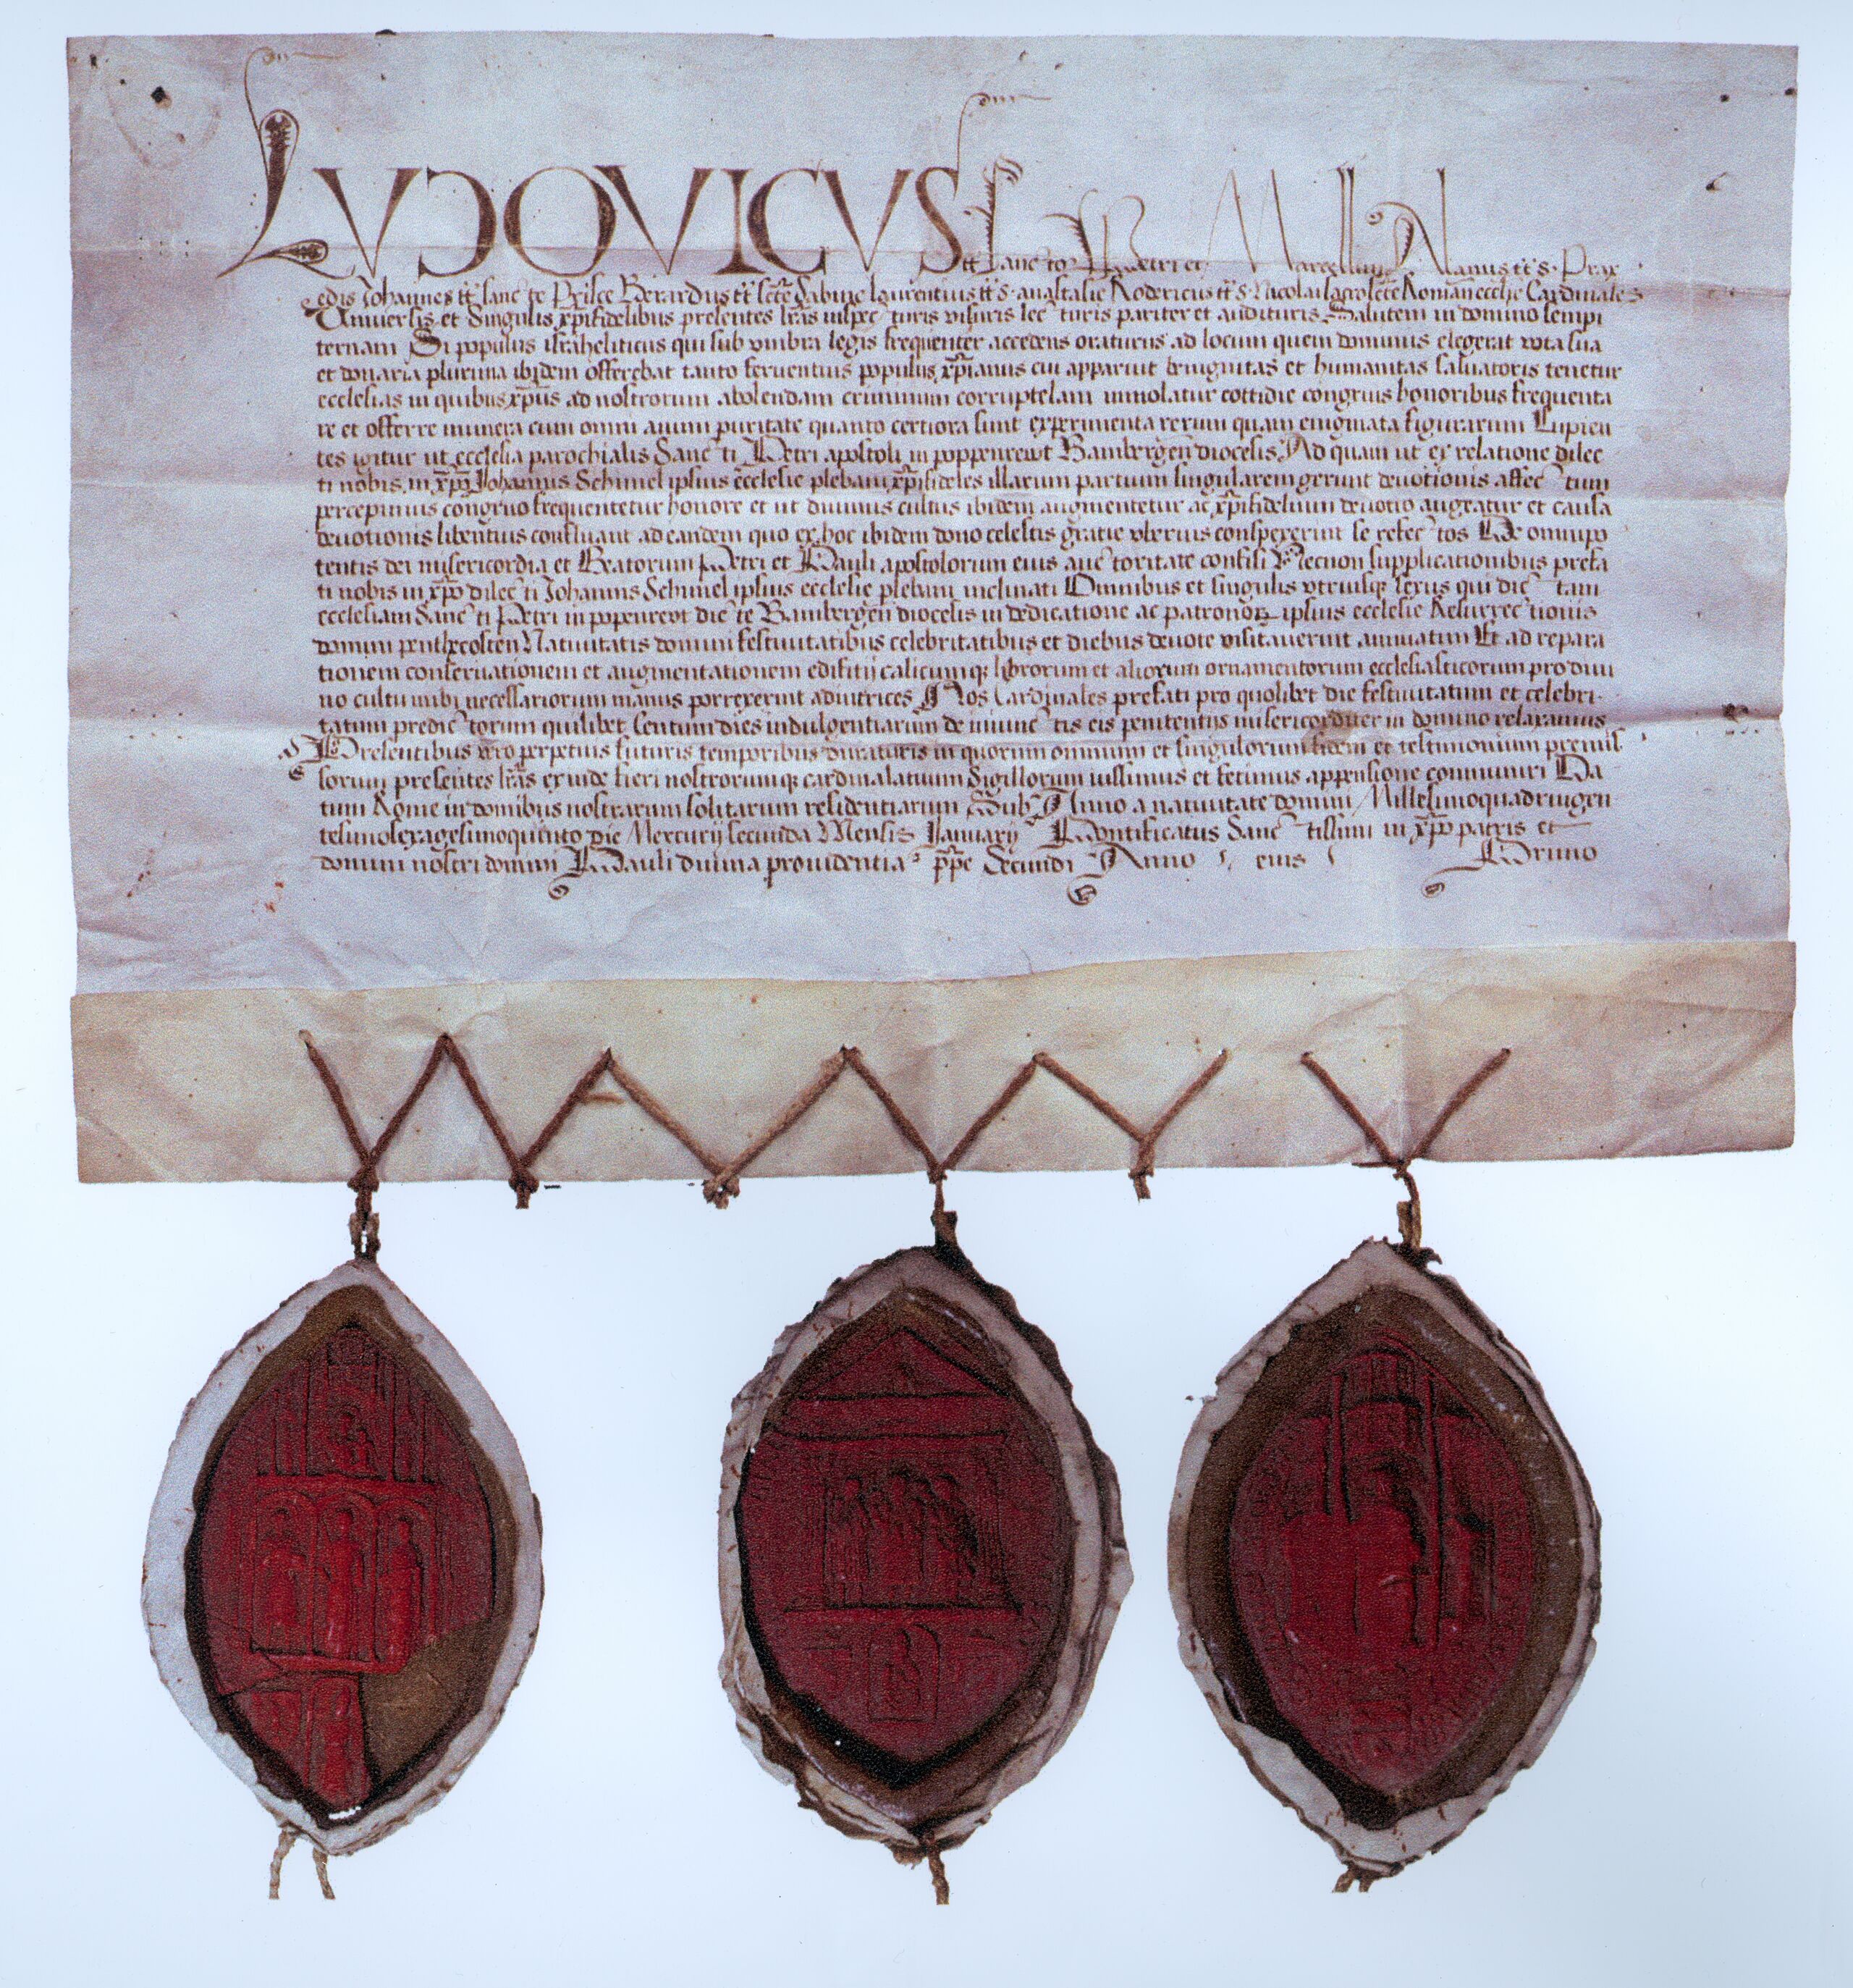 LUDOVICUS tt Sanctorum Petri et Marcellini Alanus tt s. Prax
edis Johannes tt sancte Prisce Berardus tt scte Sabine laurentius tt s. anastasie Rodericus tt s. Nicolai sacroscte Roman ecclie Cardinales
Universis et Singulis xpifidelibus presentes lras inspecturis visuris lecturis pariter et audituris Salutem in domino sempi
ternam Si populus israheliticus qui sub umbra legis frequenter accedens oraturus ad locum quem dominus elegerat vota sua
et donaria plurima ibidem offerebat tanto ferventius populus xpianus cui apparuit benignitas et humanitas salvatoris tenetur
ecclesias in quibus xpus ad nostrorum abolendam criminum corruptelam immolatur cottidie congruis honoribus frequenta
re et offerre munera cum omni animi puritate quanto certiora sunt experimenta rerum quam enigmata figurarum Cupien
tes igitur ut ecclesia parochialis Sancti Petri apostoli in poppenrewt Bambergen diocesis Ad quam ut ex relatione dilec
ti nobis in xpo Johannis Schimel ipsius ecclesie plebani xpifideles illarum partium singularem gerunt devotionis affectum
percepimus congruo frequentetur honore et ut divinus cultus ibidem augmentetur ac xpifidelium devotio augeatur et causa
devotionis libentius confluant ad eandem quo ex hoc ibidem dono celestis gratie uberius conspexerint se refectos De omnipo
tentis dei misericordia et Beatorum Petri et Pauli apostolorum eius auctoritate confisi Necnon supplicationibus prefa
ti nobis in xpo dilecti Johannis Schimel ipsius ecclesie plebani inclinati Omnibus et singulis utriusque sexus qui dictam
ecclesiam Sancti Petri in popenrewt dicte Bambergen diocesis in dedicatione ac patronorum ipsius ecclesie Resurrectionis
domini penthecosten Nativitatis domini festivitatibus celebritatibus et diebus devote visitaverint annuatim Et ad repara
tionem conservationem et augmentationem edifitii calicumque librorum et aliorum ornamentorum ecclesiasticorum pro divi
no cultu inibi necessariorum manus porrexerint adiutrices Nos Cardinales prefati pro quolibet die festivitatum et celebri-
tatum predictorum quilibet Centum dies indulgentiarum de iniunctis eis penitentiis misericorditer in domino relaxamus
Presentibus vero perpetuis futuris temporibus duraturis in quorum omnium et singulorum fidem et testimonium premis
sorum presentes lras exinde fieri nostrorumque cardinalatuum Sigillorum iussimus et fecimus appensione communiri Da
tum Rome in domibus nostrarum solitarum residentiarum Sub Anno a nativitate domini Millesimoquadringen
tesimosexagesimoquinto die Mercurii secunda Mensis Januarii Pontificatus Sanctissimi in xpo patris et
domini nostri domini Pauli divina providentia ppe Secundi Anno eius Primo